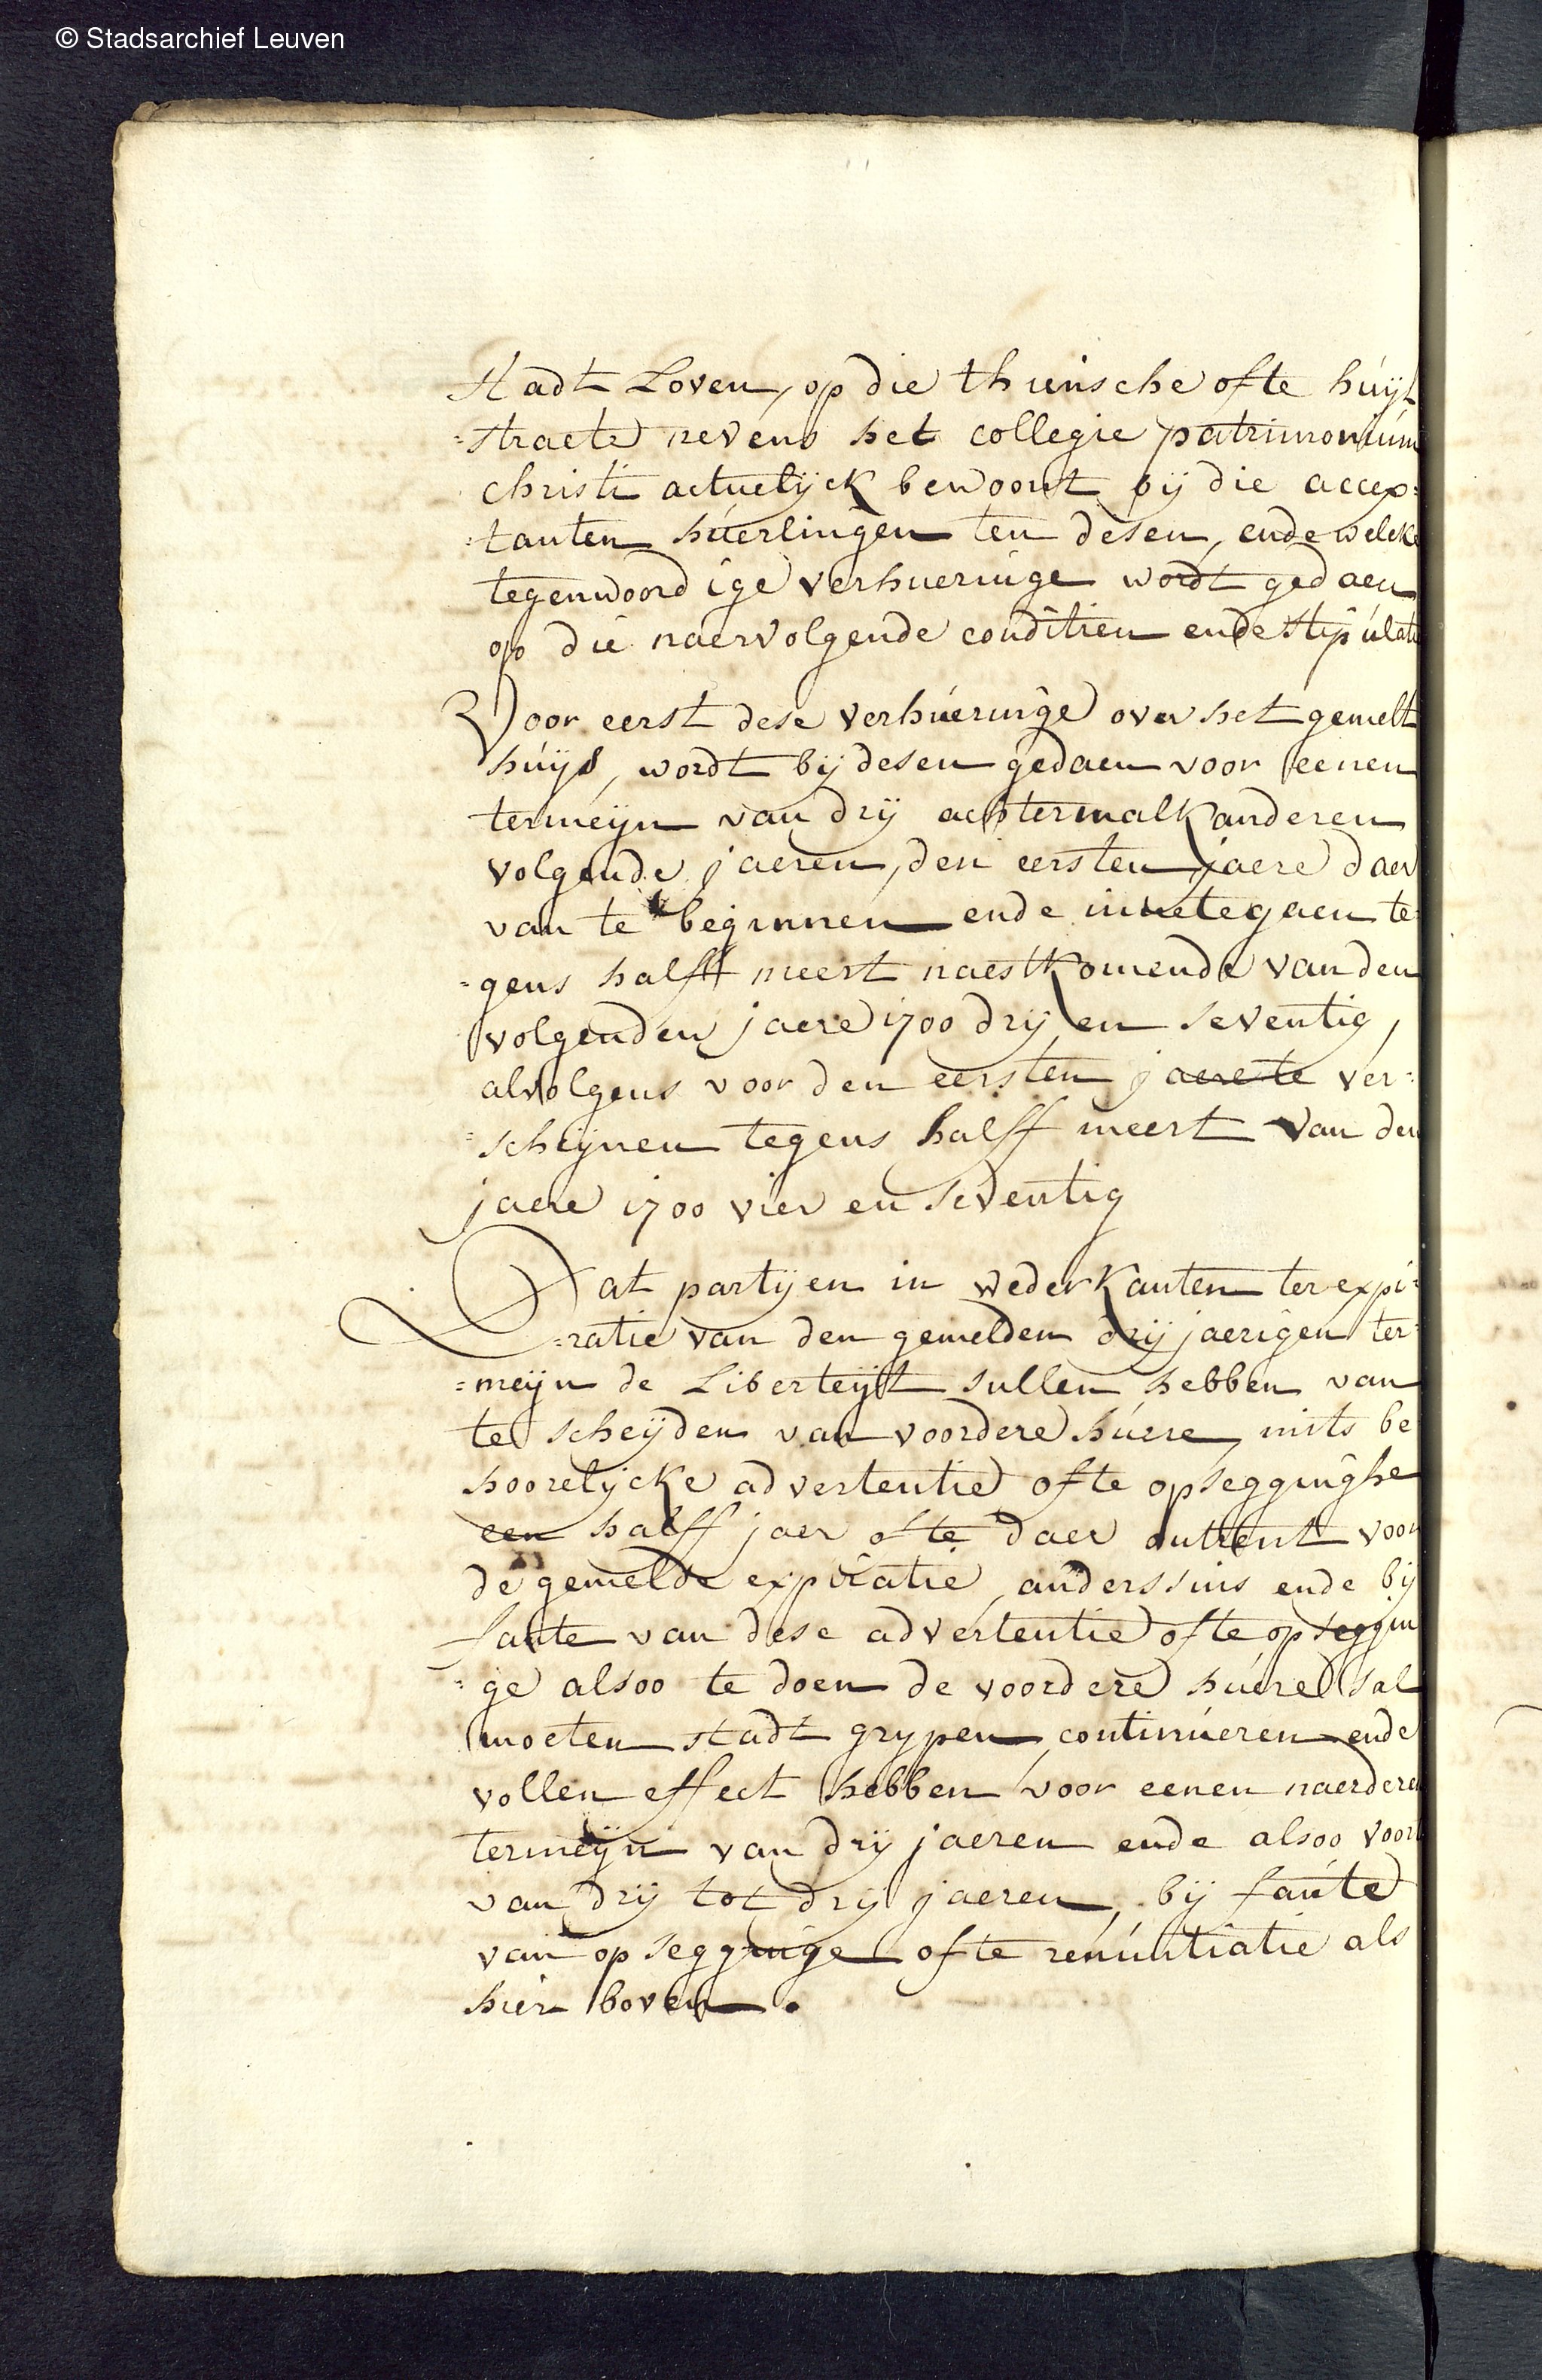 © Stadsarchief Leuven
stadt Loven, op die thiensche ofte huijt
=straete nevens het collegie patrimonium
christi actuelijck bewoont bij die accep=
=tanten huerlingen ten desen, ende welcke
tegenwoordige verhueringe wordt gedaen
op die naervolgende conditien ende stipulati
Voor eerst dese verhueringe over het gemelt
huijs, wordt bij desen gedaen voor eenen
termeijn van drij achtermalkanderen
volgende jaeren, den eersten jaere daer
van te beginnen ende innetegaen te
=gens halff meert naestkomende van den
volgenden jaere 1700 drij en seventig,
alvolgens voor den eersten jaere te ver=
=scheijnen tegens halff meert van den
jaere 1700 vier en seventig
Dat partijen in wederkanten ter expi=
=ratie van den gemelden drij jaerigen ter=
=meijn de Liberteijt sullen hebben van
te scheijden van voordere huere, mits be
hoorelijcke advertentie ofte opsegginghe
een halff jaer ofte daer ontrent voor
de gemelde expiratie, anderssins ende bij
faute van dese advertentie ofte opseggin
=ge alsoo te doen de voordere huere sal
moeten stadt grypen, continueren ende
vollen effect hebben voor eenen naerderen
termeijn van drij jaeren ende alsoo voor
van drij tot drij jaeren, bij faute
van opsegginge ofte renuntiatie als
hier boven.